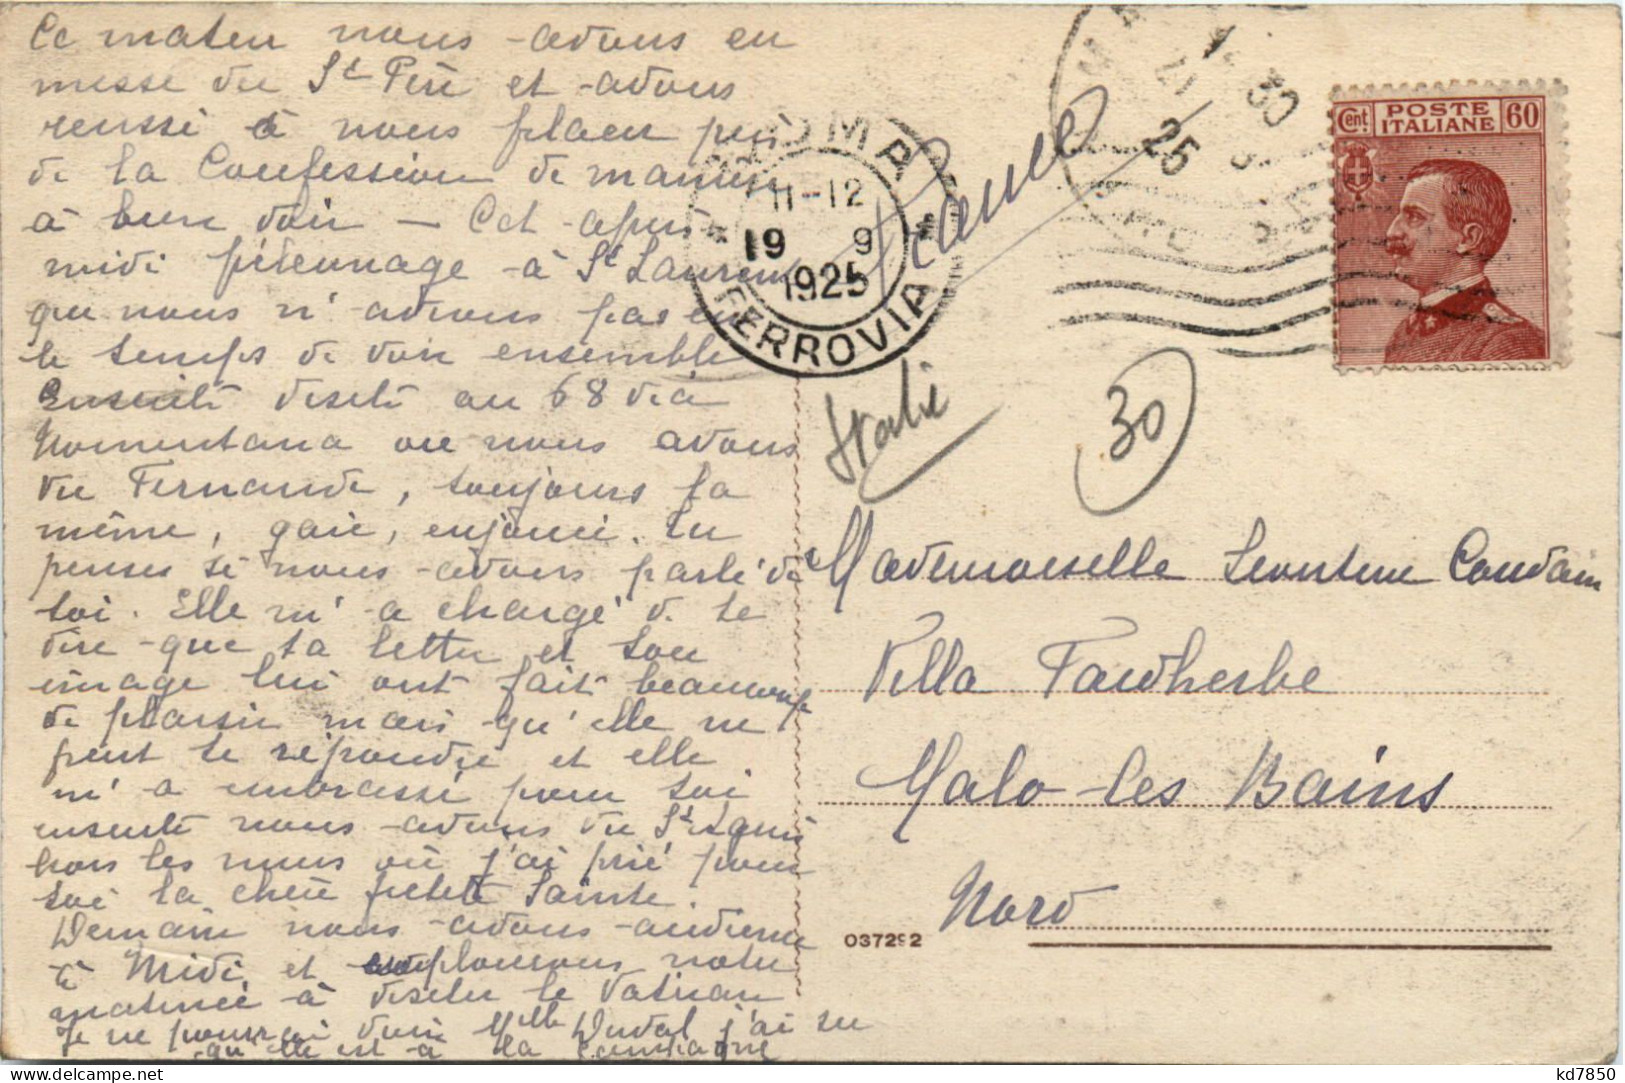 Ce matin nous avons eu
messe du St Père et avons
reussi à nous placer près
de la Confession de manière
à bien voir — Cet après
midi pélerinage à St Laurent
que nous n'avions pas eu
le temps de voir ensemble
Ensuite visite au 68 via
Nomentana ou nous avons
vu Fernande, toujours la
même, gaie, enjouée. Tu
penses si nous avons parlé de
toi. Elle m'a chargé de te
dire que ta lettre et ton
image lui ont fait beaucoup
de plaisir mais qu'elle ne
peut te répondre et elle
m'a embrassé pour toi
ensuite nous avons vu St
hors les murs où j'ai prié pour
toi la chère petite Sainte.
Demain nous avons audience
à Midi et emploierons notre
matinée à visiter le Vatican
Je ne pourrai voir Melle Duval j'ai su
qu'elle est à la campagne
ROMA
11-12
19 9
1925
FERROVIA
France
Italie
30
25
30
Cent. POSTE ITALIANE 60
Mademoiselle Leontine Coudain
Villa Faidherbe
Malo-les Bains
Nord
037292
kd7850